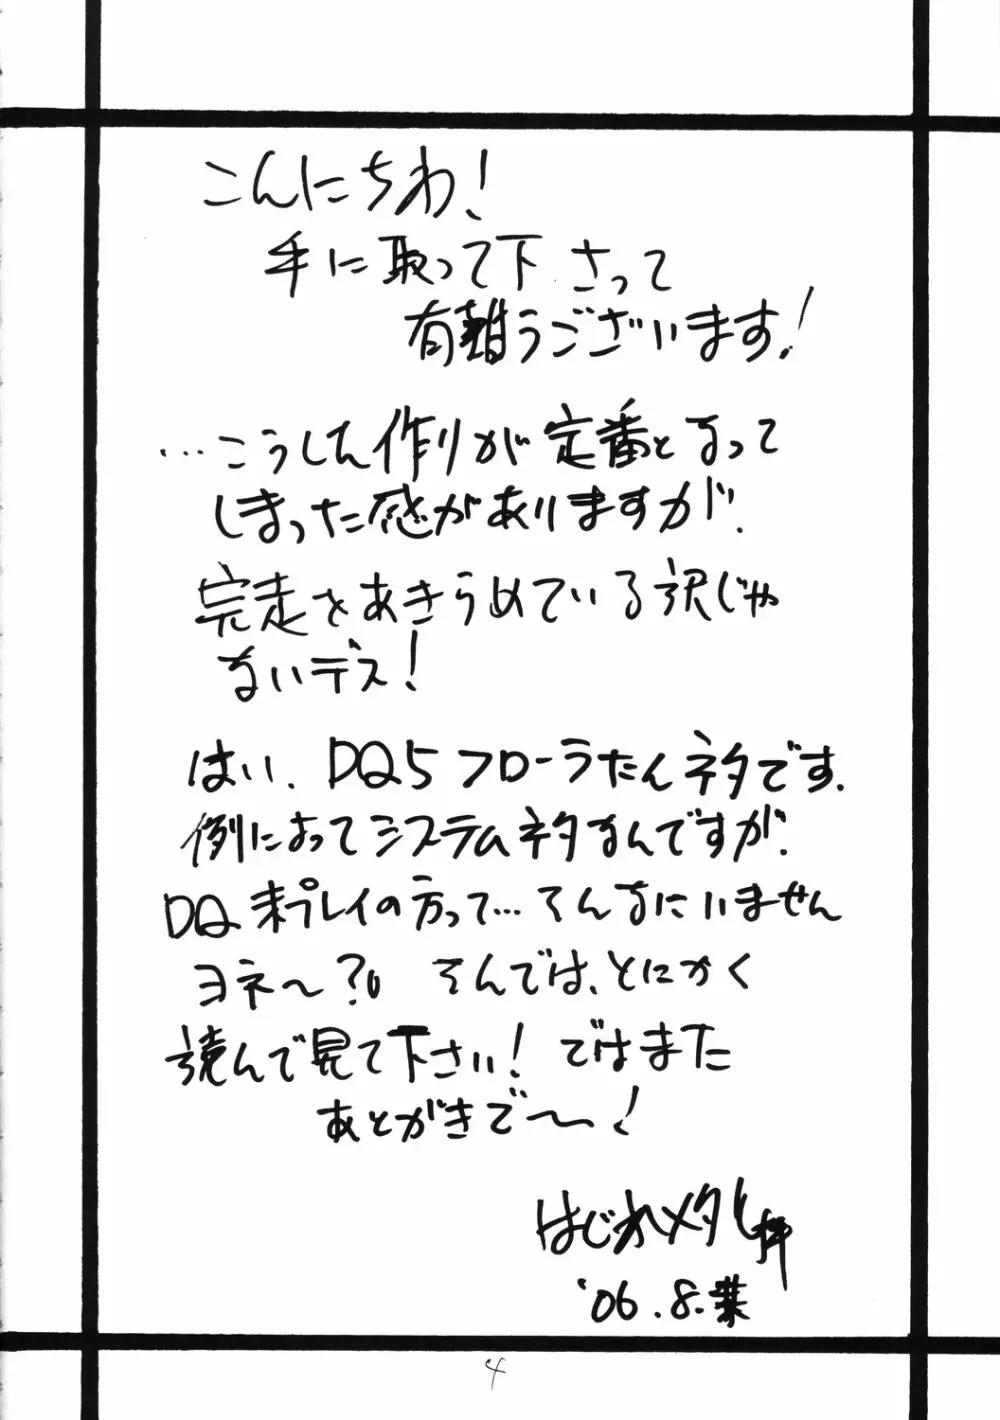 こんにちわ!
手に取って下さって
有難うございます!
…こうした作りが定番となって
しまった感がありますが、
完走をあきらめている訳じゃ
ないデス!
はい、DQ5フローラたんネタです。
例によってシステムネタなんですが、
DQ未プレイの方って…そんなにいません
ヨネ〜?。そんでは、とにかく
読んで見て下さい!ではまた
あとがきで〜!
はじめメタル拝
'06.8.
4